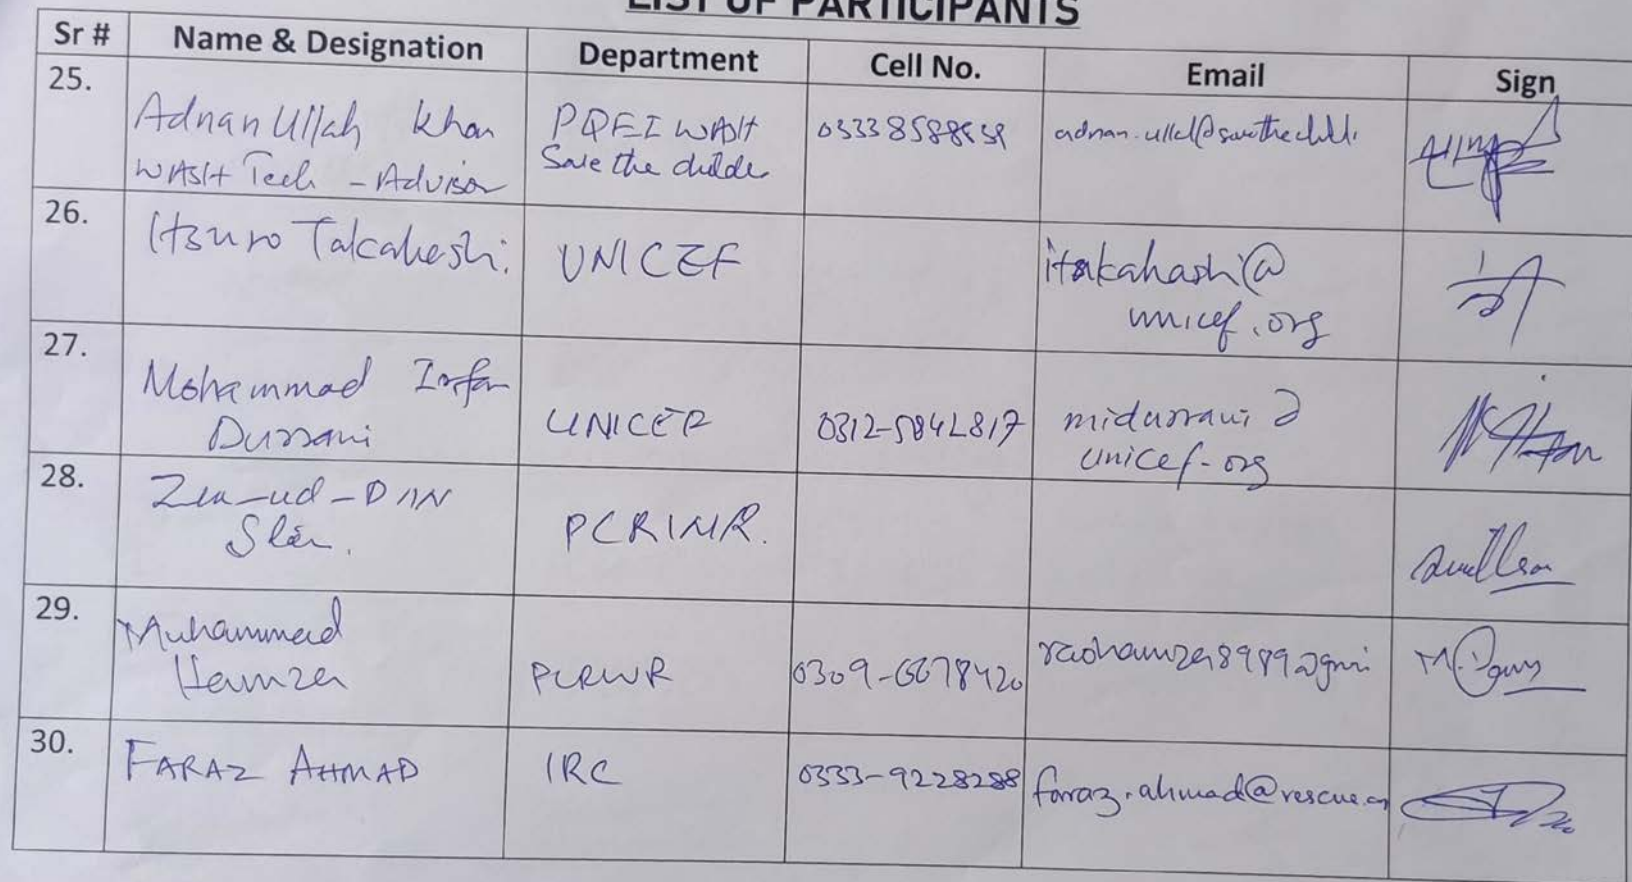 LIST OF PARTICIPANTS
Sr # Name & Designation Department Cell No. Email Sign
25.
Adnan Ullah Khan PQEI WASH
WASH Tech - Advisor Save the childre
26.
Itsuro Takahashi. UNICEF itakahashi@
unicef.org
27.
Mohammad Irfan
Durrani UNICEF midurrani @
unicef.org
28.
Zia-ud-DIN
PCRWR.
29.
Muhammad
Hamza PCRWR 0309-6678420 raohamza8989@gmi
30.
FARAZ AHMAD IRC 0333-9228288 farraz.ahmad@rescue.org